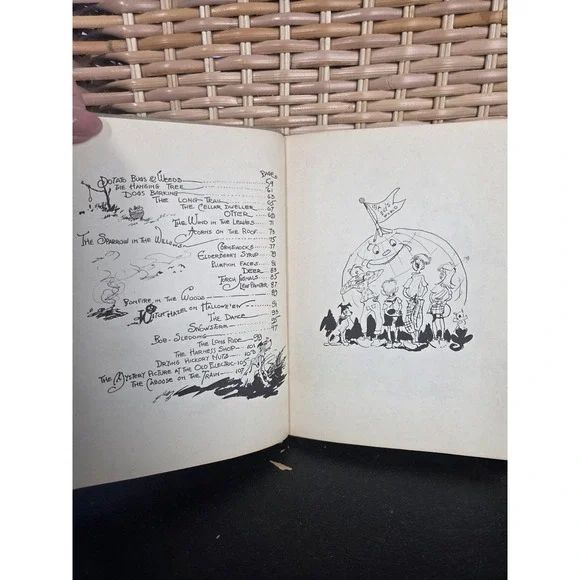 PAGE
POTATO BUGS & WEEDS 59
THE HANGING TREE 61
DOGS BARKING 63
THE LONG TRAIL 65
THE CELLAR DWELLER 67
OTTER 69
THE WIND IN THE LEAVES 71
ACORNS ON THE ROOF 73
THE SPARROW IN THE WILLOWS 75
CORNSHOCKS 77
ELDERBERRY SYRUP 79
PUMPKIN FACES 81
DEER 83
TORCH SIGNALS 85
NEW PAINTER 87
BONFIRE IN THE WOODS 89
WITCH HAZEL ON HALLOWE'EN 91
THE DANCE 93
SNOWSTORM 95
BOB-SLEDDING 97
THE LONG RIDE 99
THE HARNESS SHOP 101
DRYING HICKORY NUTS 103
THE MYSTERY PICTURE AT THE OLD ELECTRIC 105
THE CABOOSE ON THE TRAIN 107